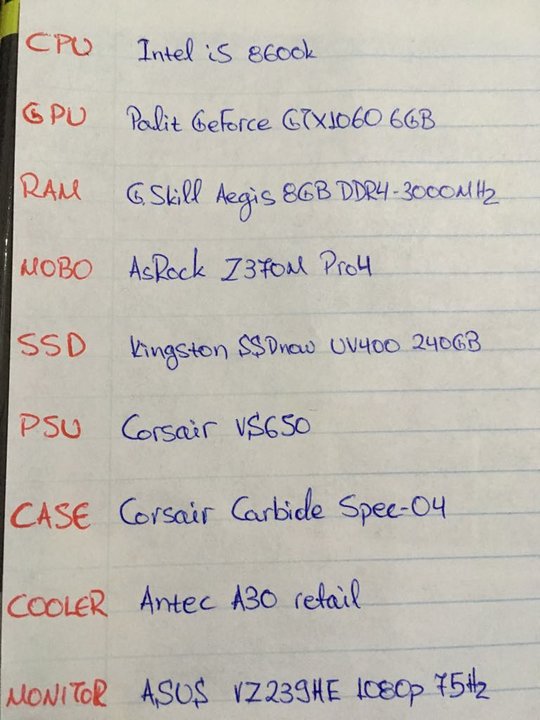 CPU Intel i5 8600k
GPU Palit GeForce GTX1060 6GB
RAM G.Skill Aegis 8GB DDR4-3000MHz
MOBO AsRock Z370M Pro4
SSD Kingston SSDnow UV400 240GB
PSU Corsair VS650
CASE Corsair Carbide Spec-04
COOLER Antec A30 retail
MONITOR ASUS VZ239HE 1080p 75Hz